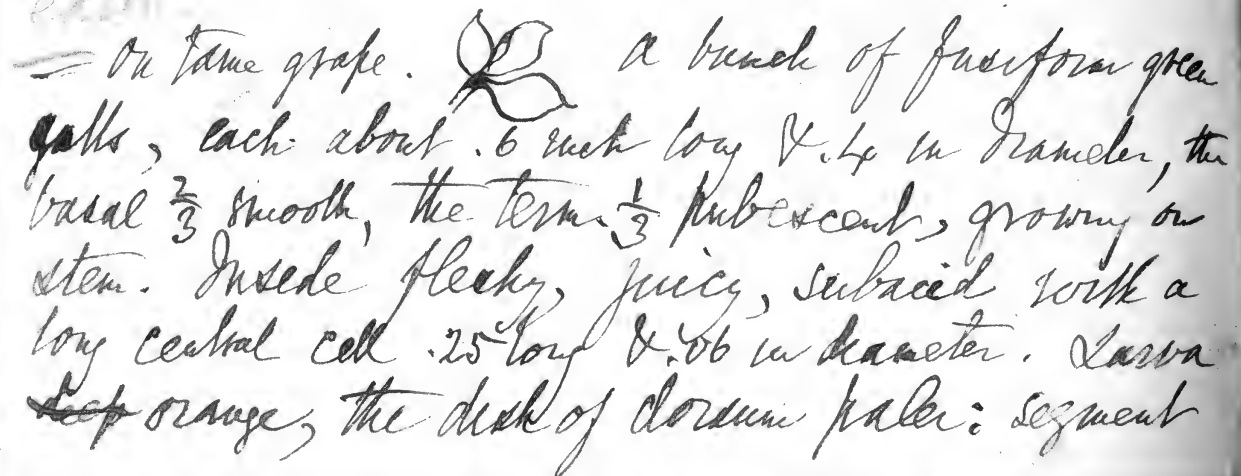 = on tame grape. a bunch of fusiform green
galls, each about .6 inch long & .4 in diameter, the
basal 2/3 smooth, the term. 1/3 pubescent, growing on
stem. Inside fleshy, juicy, subacid with a
long central cell .25 long & .06 in diameter. Larva
deep orange, the disk of dorsum paler: segment